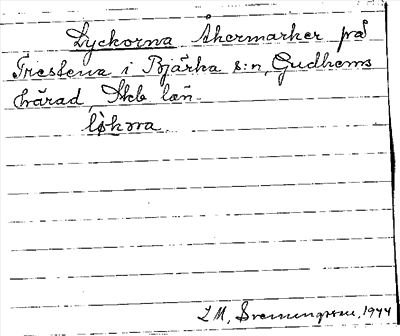 Lyckorna Åkermarker på
Trestena i Bjärka s:n, Gudhems
härad, Skb län.
lỳkna.
I M, Svenungsson, 1944